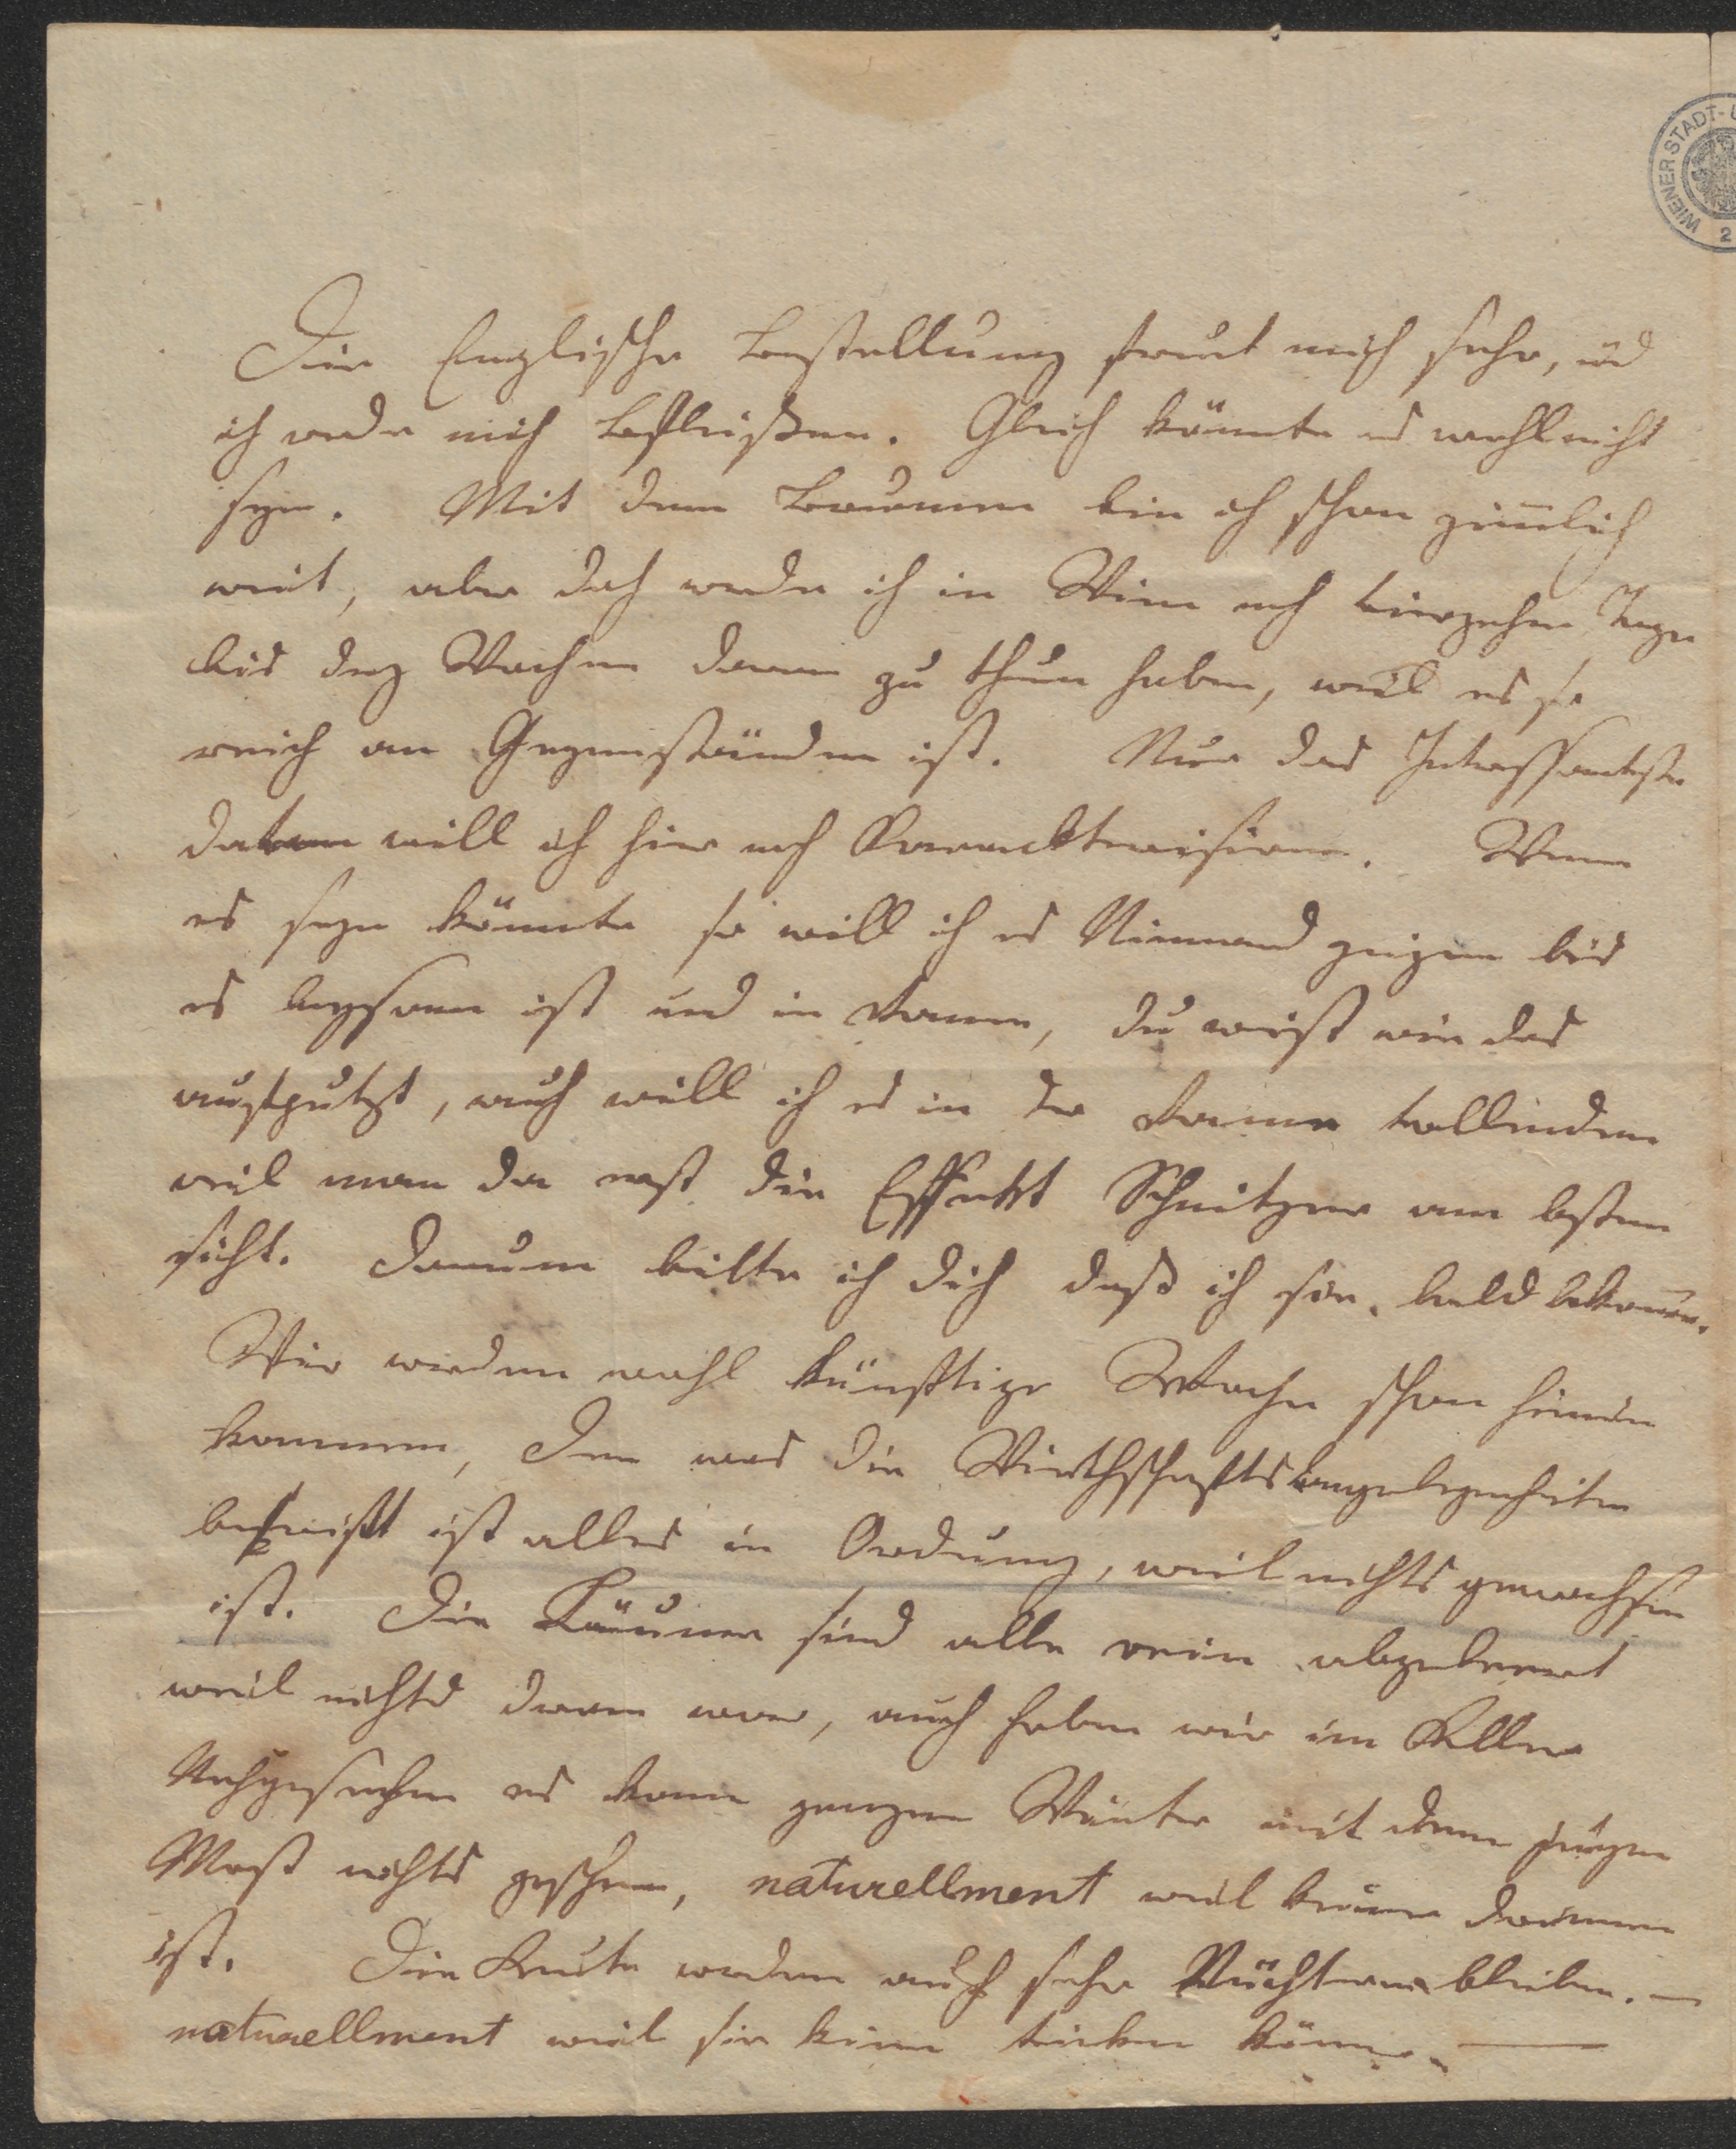 WIENER STADT-
2
Die Englische Bestellung freut mich sehr, und
ich werde mich befleißen. Gleich könnte es wohl nicht
seyn. Mit dem Braunen bin ich schon ziemlich
weit, aber doch werde ich in Wien noch vierzehn Tage
bis drey Wochen daran zu thun haben, weil es so
reich an Gegenständen ist. Nur das Interessanteste
davon will ich hier noch Karackterisiren. Wenn
es seyn könnte so will ich es Niemand zeigen bis
es beysamm ist und in Ramen, du weist wie das
ausputzt, auch will ich es in der Rame vollenden
weil man da erst die Effekt Schnitzer am besten
sieht. Darum bitte ich dich daß ich sie bald bekomme.
Wir werden wohl künftige Woche schon hinein
kommen, den was die Wirthschaftsangelegenheiten
betrifft ist alles in Ordnung, weil nichts gewachsen
ist. Die Bäume sind alle rein abgeleert
weil nichts daran war, auch haben wir im Keller
Nachgesehen es kann ganzen Winter mit dem heurigen
Most nichts geschehen, naturellment weil keiner darinnen
ist. Die Leute werden auch sehr Nüchtern bleiben. —
naturellment weil sie keinen trinken können. —